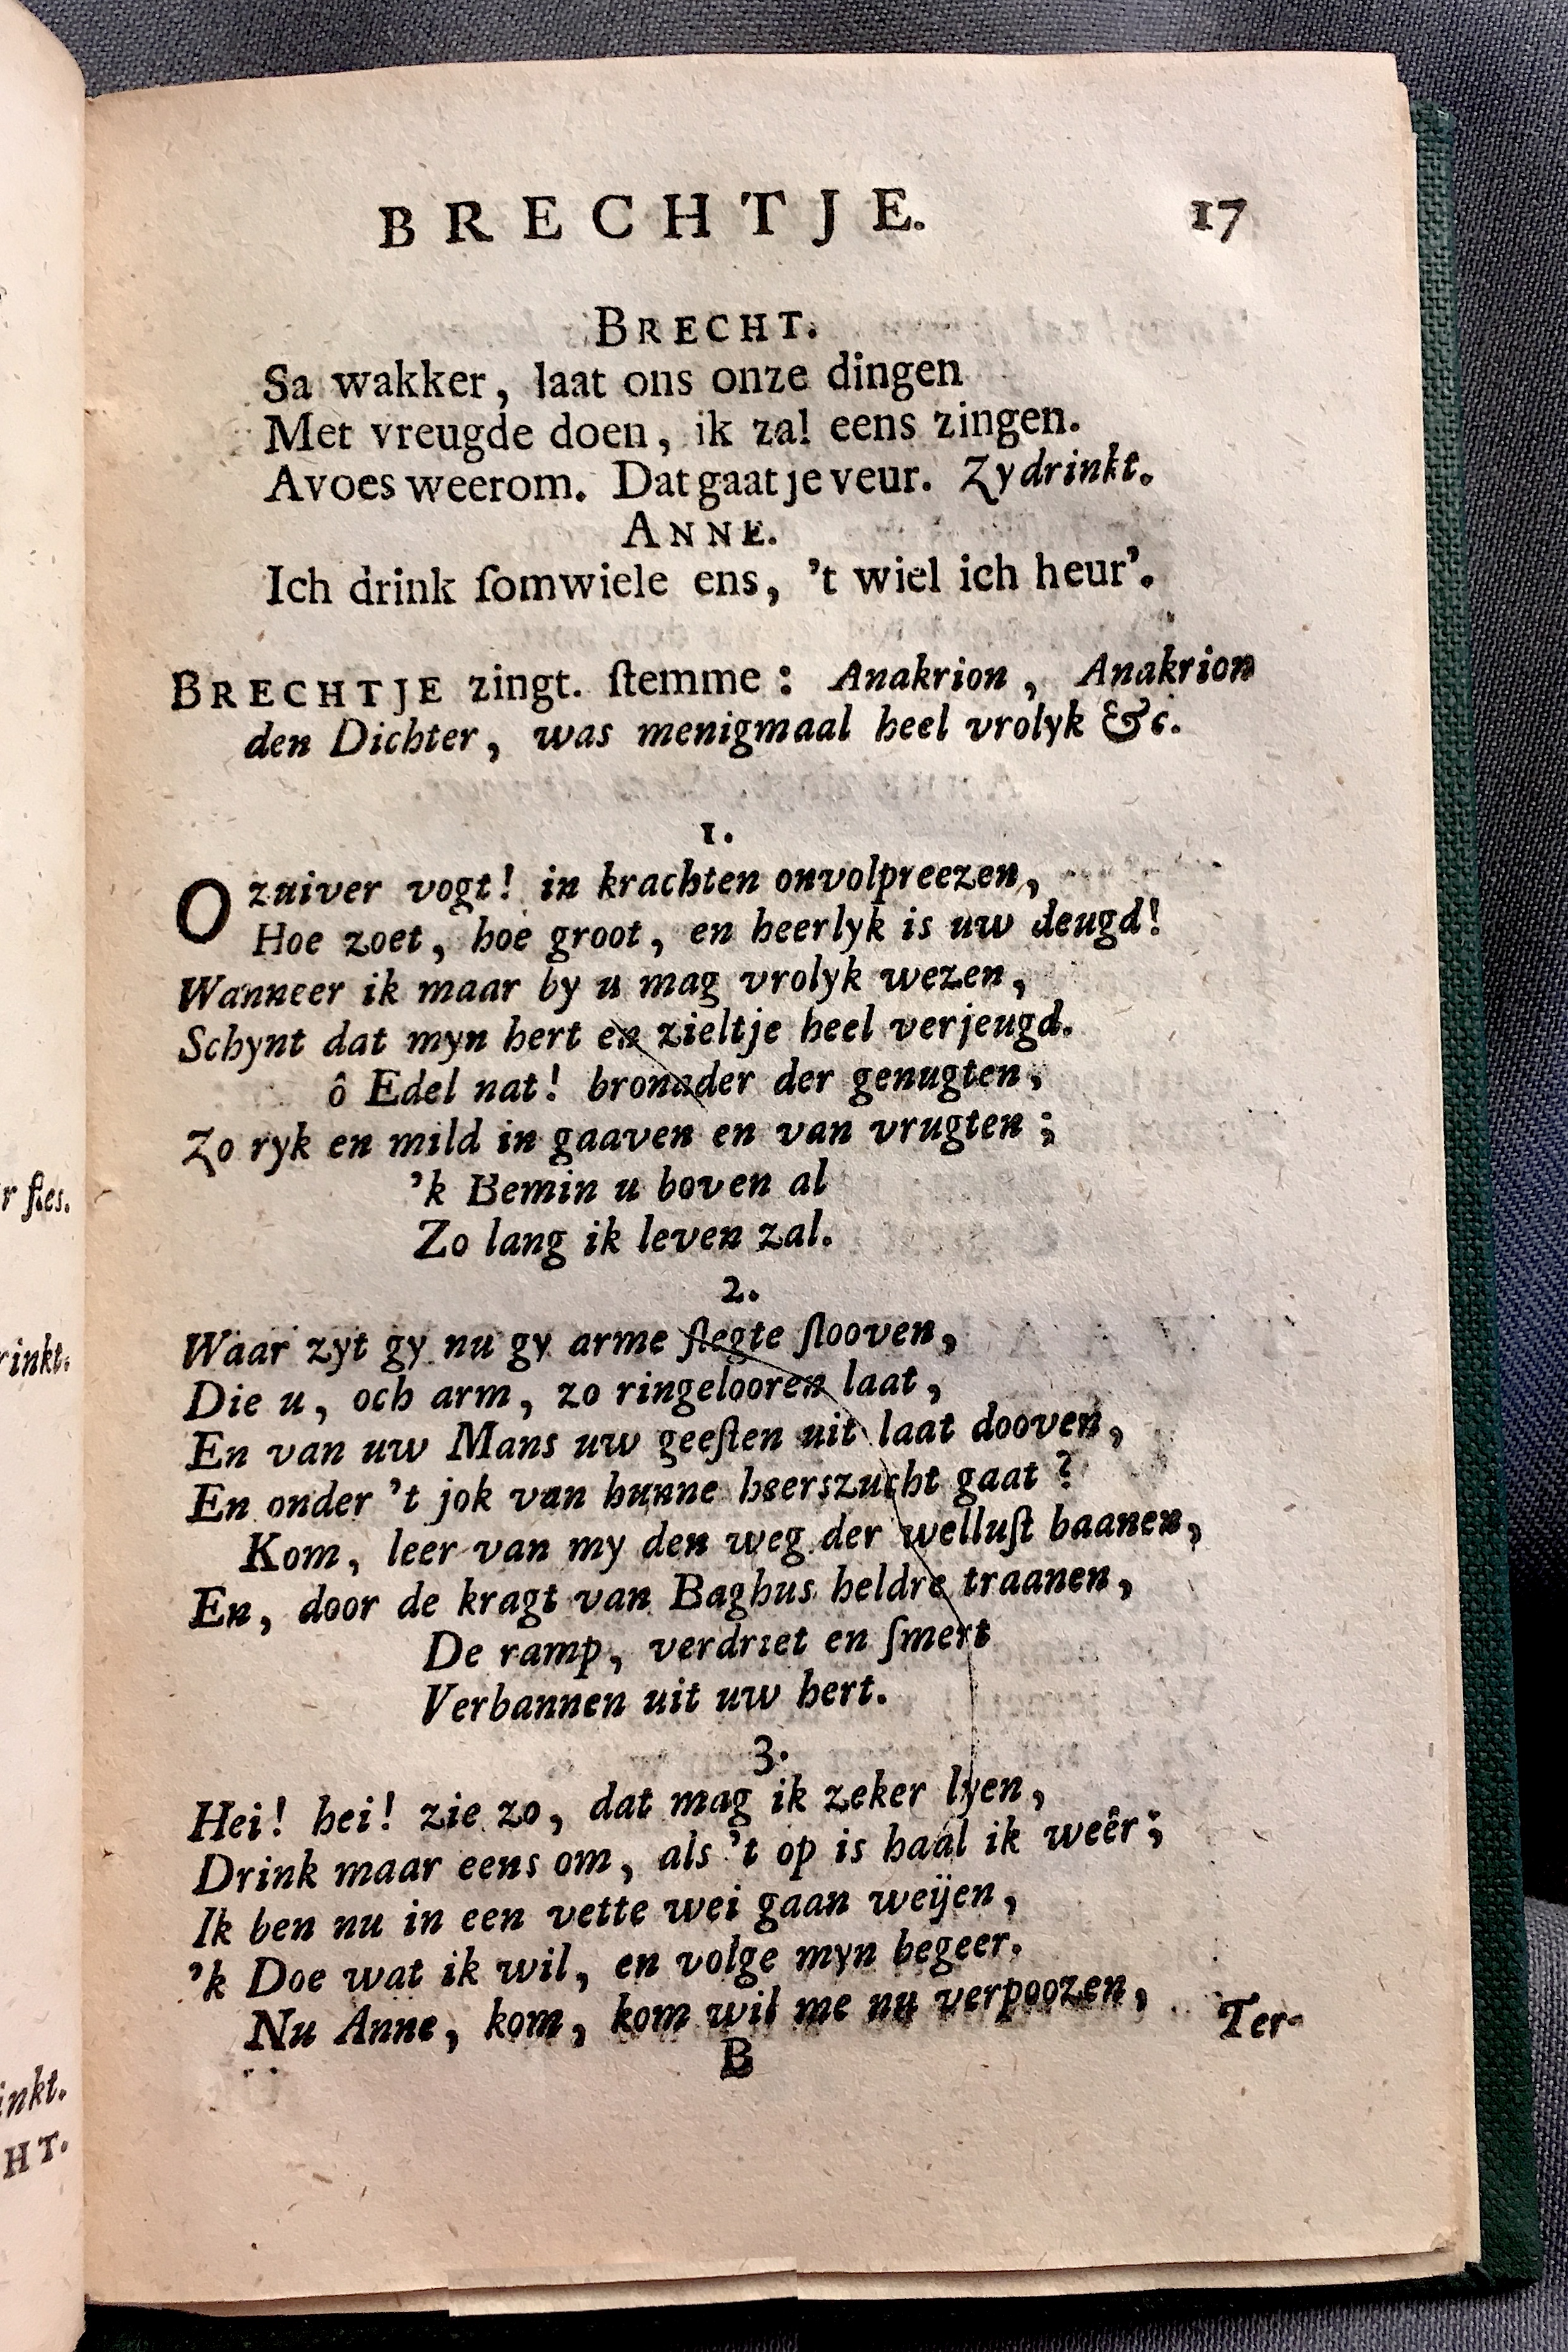 r ſles.
rinkt.
inkt.
HT.
BRECHTJE. 17
BRECHT.
Sa wakker, laat ons onze dingen
Met vreugde doen, ik zal eens zingen.
Avoes weerom. Dat gaat je veur. Zy drinkt.
ANNE.
Ich drink ſomwiele ens, 't wiel ich heur'.
BRECHTJE zingt. ſtemme: Anakrion, Anakrion
den Dichter, was menigmaal heel vrolyk &c.
1.
O zuiver vogt! in krachten onvolpreezen,
Hoe zoet, hoe groot, en heerlyk is uw deugd!
Wanneer ik maar by u mag vrolyk wezen,
Schynt dat myn hert en zieltje heel verjeugd.
ô Edel nat! bronader der genugten,
Zo ryk en mild in gaaven en van vrugten;
'k Bemin u boven al
Zo lang ik leven zal.
2.
Waar zyt gy nu gy arme ſlegte ſlooven,
Die u, och arm, zo ringelooren laat,
En van uw Mans uw geeſten uit laat dooven,
En onder 't jok van hunne heerszucht gaat?
Kom, leer van my den weg der welluſt baanen,
En, door de kragt van Baghus heldre traanen,
De ramp, verdriet en ſmert
Verbannen uit uw hert.
3.
Hei! hei! zie zo, dat mag ik zeker lyen,
Drink maar eens om, als 't op is haal ik weêr;
Ik ben nu in een vette wei gaan weijen,
'k Doe wat ik wil, en volge myn begeer.
Nu Anne, kom, kom wil me nu verpoozen,
B Ter-